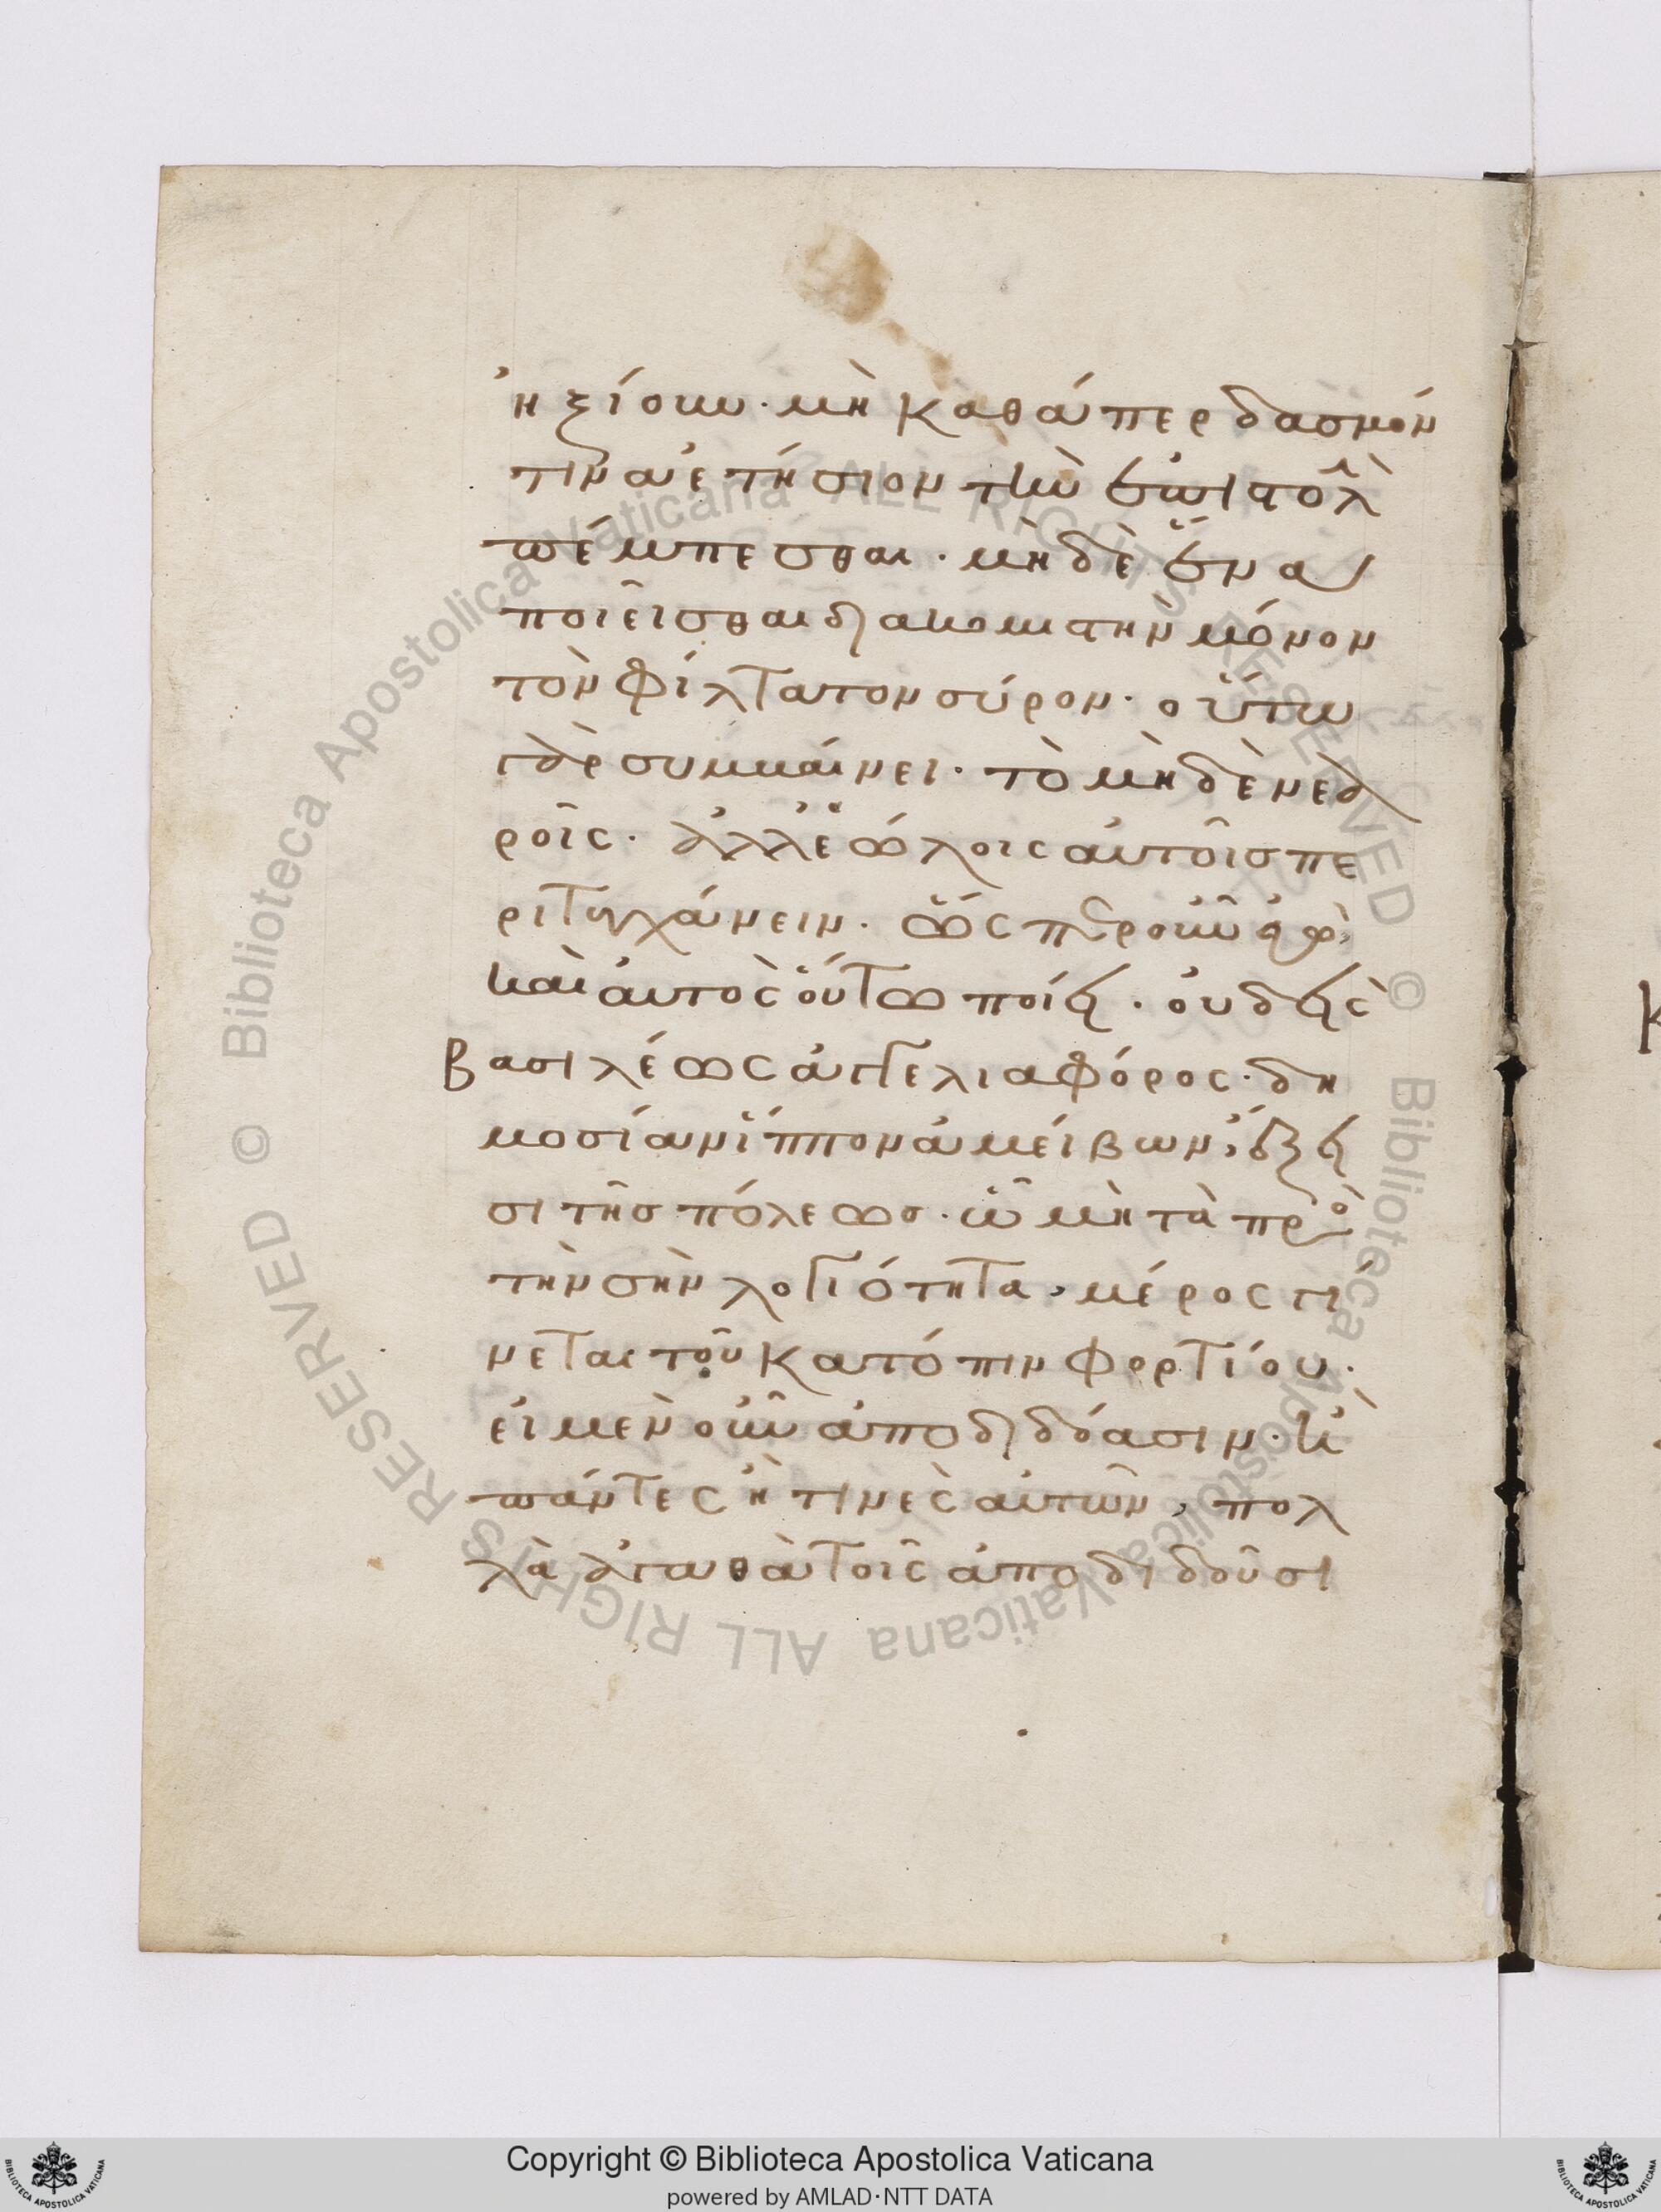 ἠξίουν· μὴ καθάπερ δασμόν
τινα ἐτήσιον τὴν ἐπιστολὴν
πέμπεσθαι· μηδὲ ἕνα
ποιεῖσθαι διακομιστὴν μόνον
τὸν φίλτατον σύρον· οὕτω
γὰρ συμβαίνει· τὸ μηδὲ νεα
ροῖς· ἀλλ' ἑώλοις αὐτοῖς πε
ριτυγχάνειν. ὥσπερ οὖν ἐγὼ,
καὶ αὐτὸς οὕτω ποίει. οὐδεὶς
βασιλέως ἀγγελιαφόρος· δη
μοσίαν ἵππον ἀμείβων, ἔξει
σι τῆς πόλεως. ᾧ μὴ τὰ πρὸς
τὴν σὴν λογιότητα, μέρος γί
νεται τοῦ κατόπιν φορτίου.
εἰ μὲν οὖν ἀποδιδόασιν· ἢ
πάντες ἤ τινες αὐτῶν, πολ
λὰ ἀγαθὰ τοῖς ἀποδιδοῦσι
Copyright © Biblioteca Apostolica Vaticana
powered by AMLAD·NTT DATA